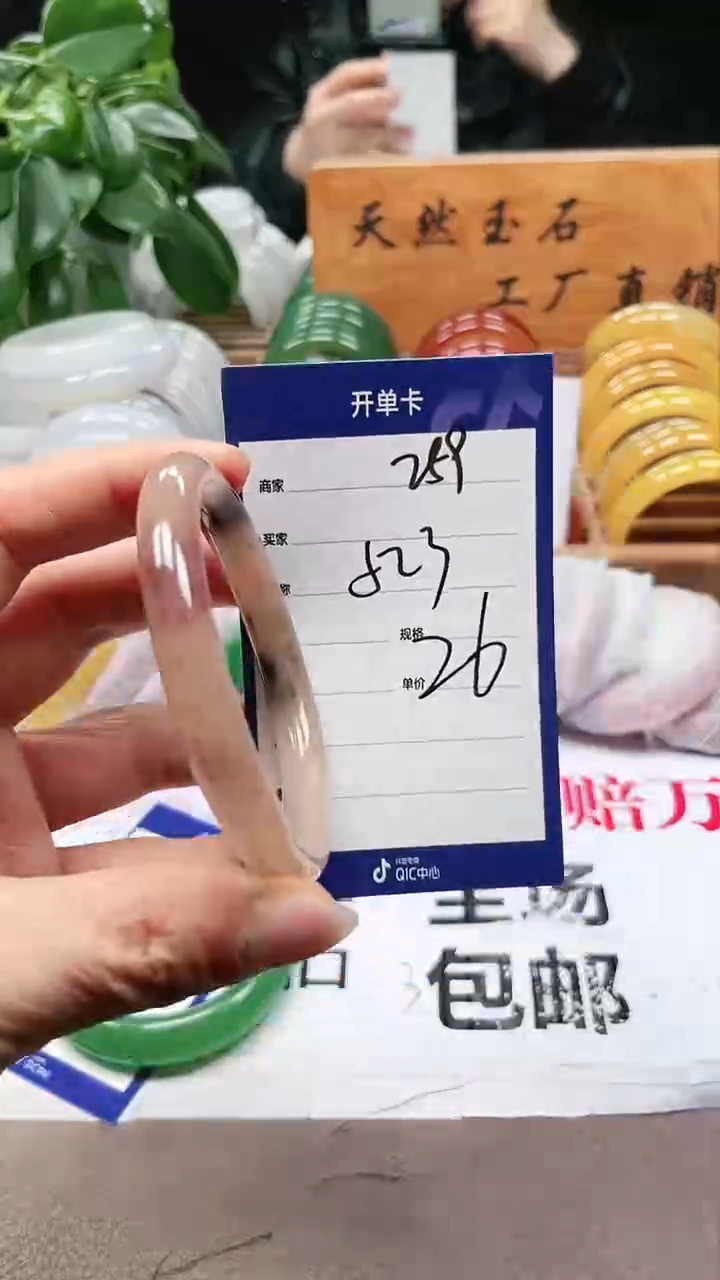 天然玉石
工厂直销
开单卡
商家 259
买家
称 523
规格
单价 26
赔万
抖音电商
QIC中心
全场
包邮
口